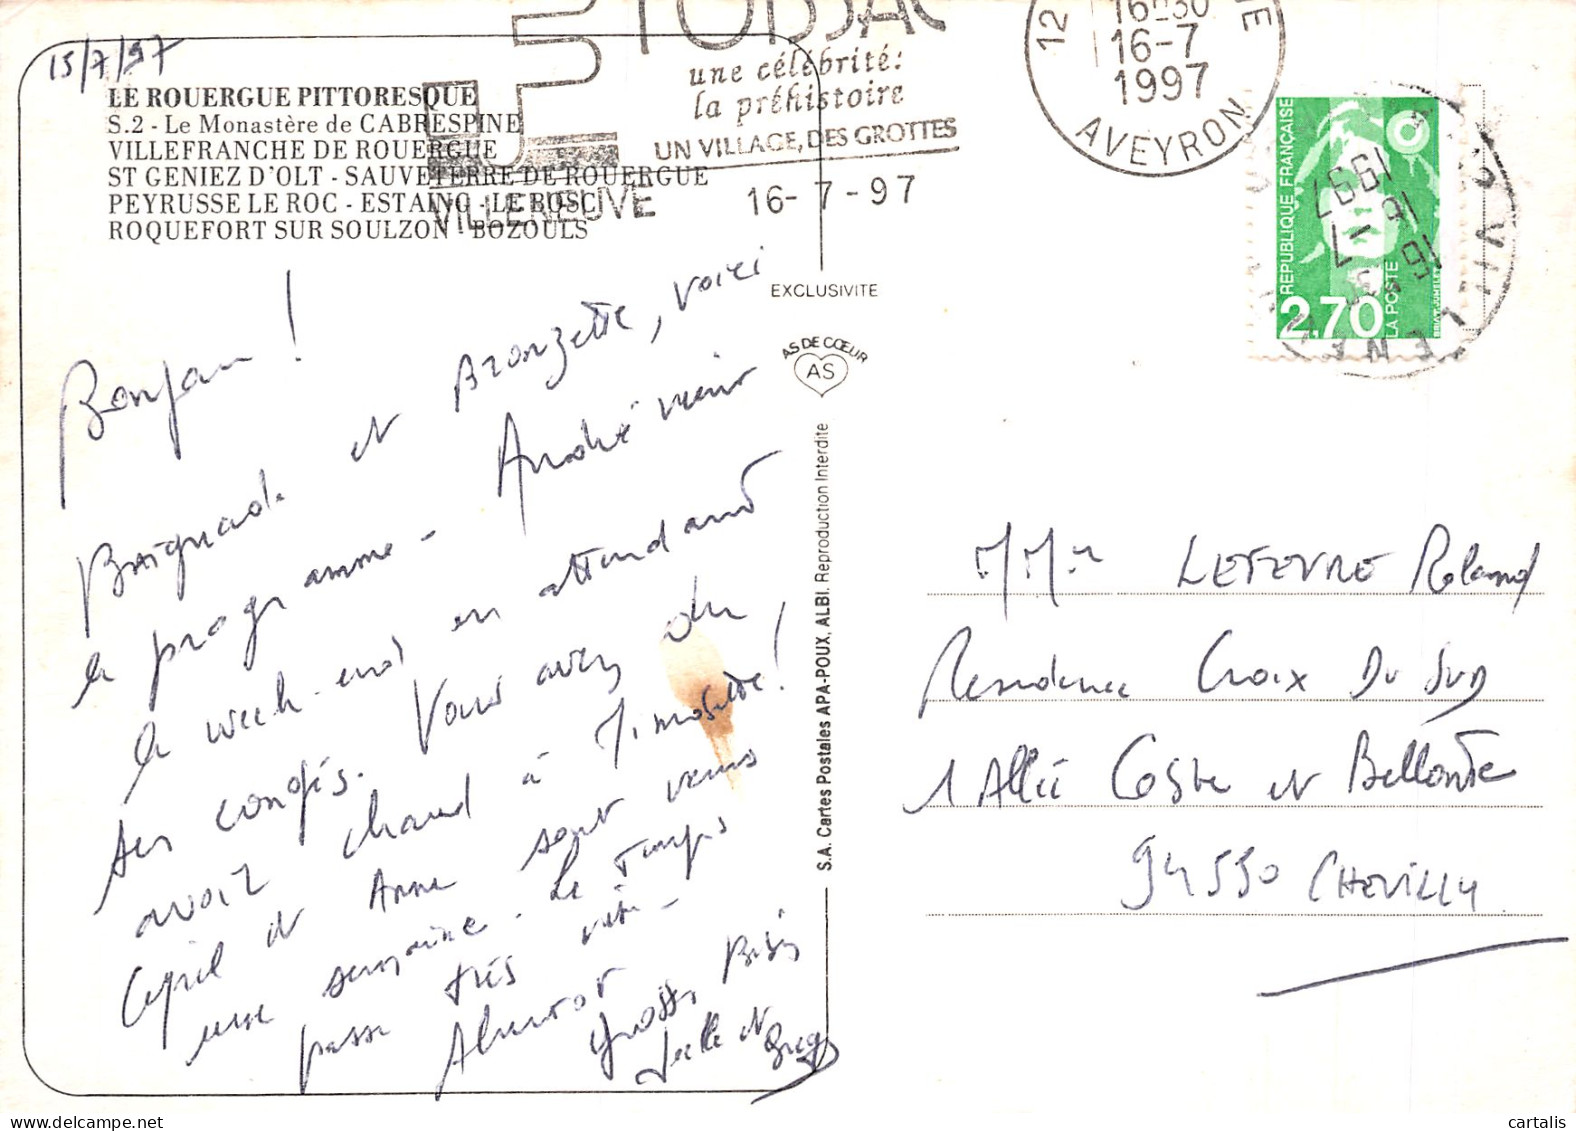 15/7/97
LE ROUERGUE PITTORESQUE
S.2 - Le Monastère de CABRESPINE
VILLEFRANCHE DE ROUERGUE
ST GENIEZ D'OLT - SAUVETERRE DE ROUERGUE
PEYRUSSE LE ROC - ESTAING - LE BOSC
ROQUEFORT SUR SOULZON - BOZOULS
FOISSAC
une célébrité:
la préhistoire
UN VILLAGE, DES GROTTES
VILLENEUVE
16-7-97
12
16-30
16-7
1997
AVEYRON
REPUBLIQUE FRANÇAISE
2,70
LA POSTE
16-7
1997
EXCLUSIVITE
AS DE CŒUR
AS
S.A. Cartes Postales APA-POUX, ALBI. Reproduction Interdite
Bonjour !
Baignade et Bronzette, voici
le programme - André vient
le week-end en attendant
ses congés. Vous avez du
avoir chaud à !
Cyril et Anne sont venus
une semaine - Le Temps
passe très vite -
Grosses Bises
Joëlle et Greg
M Mme LEFEVRE Roland
Residence Croix Du Sud
1 Allée Coste et Bellonte
94550 CHEVILLY
cartalis
delcampe.net